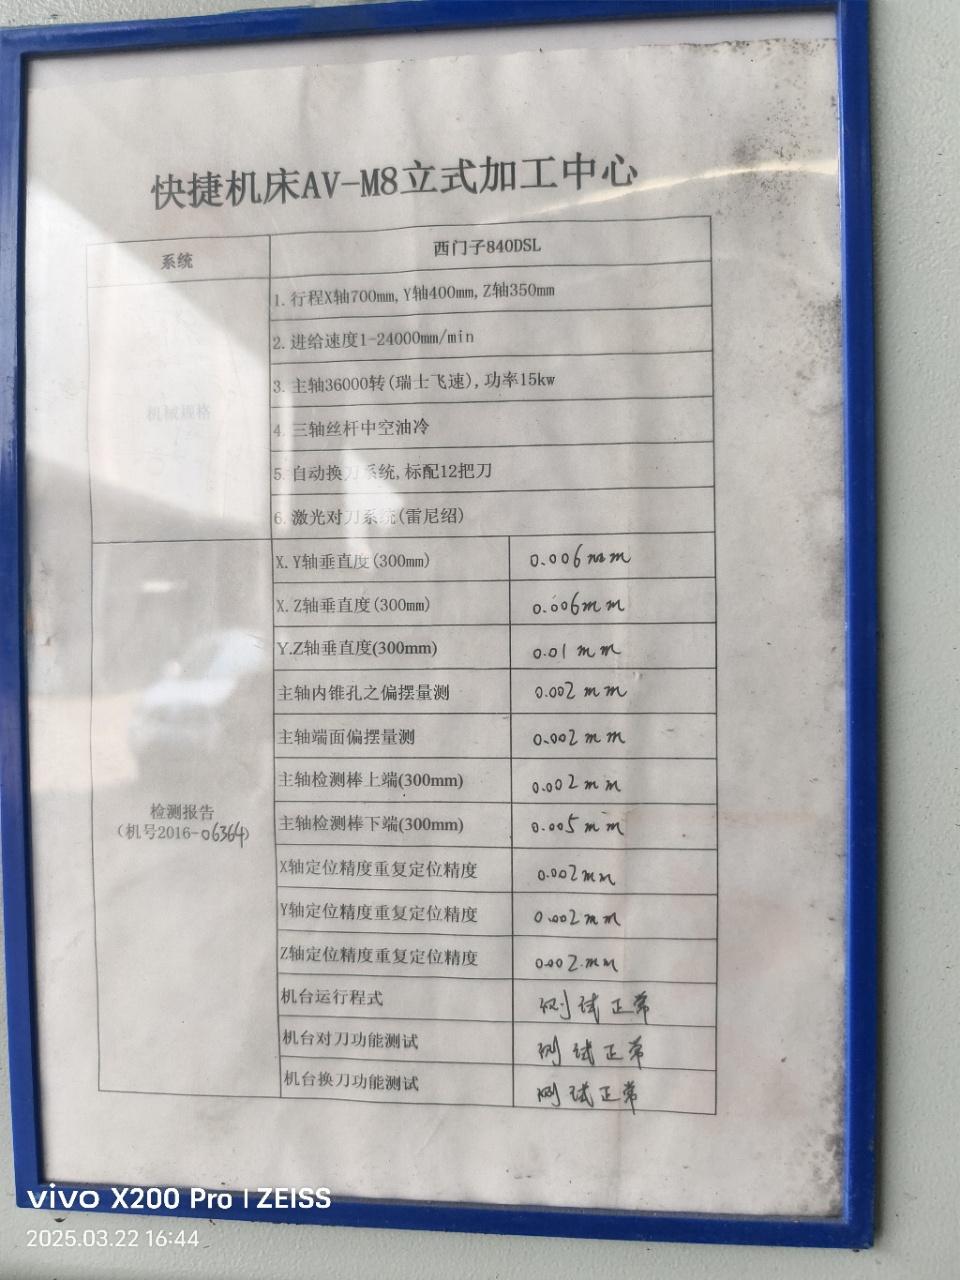 快捷机床AV-M8立式加工中心
系统
西门子840DSL
机械规格
1.行程X轴700mm,Y轴400mm,Z轴350mm
2.进给速度1-24000mm/min
3.主轴36000转(瑞士飞速),功率15kw
4.三轴丝杆中空油冷
5.自动换刀系统,标配12把刀
6.激光对刀系统(雷尼绍)
检测报告
(机号2016-06364)
X.Y轴垂直度(300mm) 0.006mm
X.Z轴垂直度(300mm) 0.006mm
Y.Z轴垂直度(300mm) 0.01mm
主轴内锥孔之偏摆量测 0.002mm
主轴端面偏摆量测 0.002mm
主轴检测棒上端(300mm) 0.002mm
主轴检测棒下端(300mm) 0.005mm
X轴定位精度重复定位精度 0.002mm
Y轴定位精度重复定位精度 0.002mm
Z轴定位精度重复定位精度 0.002mm
机台运行程式 测试正常
机台对刀功能测试 测试正常
机台换刀功能测试 测试正常
vivo X200 Pro | ZEISS
2025.03.22 16:44